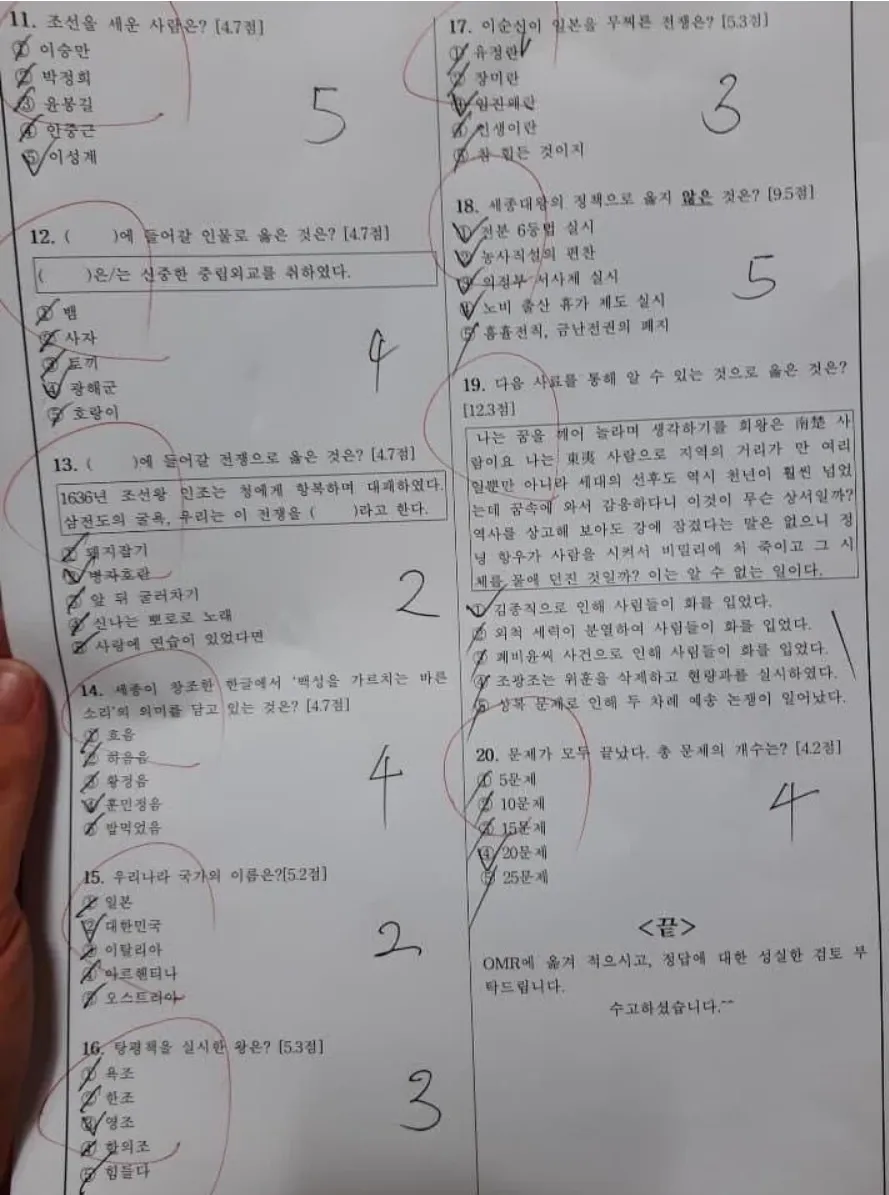 11. 조선을 세운 사람은? [4.7점]
① 이승만
② 박정희
③ 윤봉길
④ 안중근
⑤ 이성계
5
12. (    )에 들어갈 인물로 옳은 것은? [4.7점]
(    )은/는 신중한 중립외교를 취하였다.
① 뱀
② 사자
③ 토끼
④ 광해군
⑤ 호랑이
4
13. (    )에 들어갈 전쟁으로 옳은 것은? [4.7점]
1636년 조선왕 인조는 청에게 항복하며 대패하였다.
삼전도의 굴욕, 우리는 이 전쟁을 (    )라고 한다.
① 돼지잡기
② 병자호란
③ 앞 뒤 굴러차기
④ 신나는 뽀로로 노래
⑤ 사랑에 연습이 있었다면
2
14. 세종이 창조한 한글에서 '백성을 가르치는 바른
소리'의 의미를 담고 있는 것은? [4.7점]
① 흐음
② 하음음
③ 황정음
④ 훈민정음
⑤ 밥먹었음
4
15. 우리나라 국가의 이름은?[5.2점]
① 일본
② 대한민국
③ 이탈리아
④ 아르헨티나
⑤ 오스트리아
2
16. 탕평책을 실시한 왕은? [5.3점]
① 욕조
② 한조
③ 영조
④ 합의조
⑤ 힘들다
3
17. 이순신이 일본을 무찌른 전쟁은? [5.3점]
① 유정란
② 장미란
③ 임진왜란
④ 인생이란
⑤ 참 힘든 것이지
3
18. 세종대왕의 정책으로 옳지 않은 것은? [9.5점]
① 전분 6등법 실시
② 농사직설의 편찬
③ 의정부 서사제 실시
④ 노비 출산 휴가 제도 실시
⑤ 흠휼전칙, 금난전권의 폐지
5
19. 다음 사료를 통해 알 수 있는 것으로 옳은 것은?
[12.3점]
나는 꿈을 깨어 놀라며 생각하기를 회왕은 南楚 사
람이요 나는 東夷 사람으로 지역의 거리가 만 여리
일뿐만 아니라 세대의 선후도 역시 천년이 훨씬 넘었
는데 꿈속에 와서 감응하다니 이것이 무슨 상서일까?
역사를 상고해 보아도 강에 잠겼다는 말은 없으니 정
녕 항우가 사람을 시켜서 비밀리에 쳐 죽이고 그 시
체를 물에 던진 것일까? 이는 알 수 없는 일이다.
① 김종직으로 인해 사림들이 화를 입었다.
② 외척 세력이 분열하여 사림들이 화를 입었다.
③ 폐비윤씨 사건으로 인해 사림들이 화를 입었다.
④ 조광조는 위훈을 삭제하고 현량과를 실시하였다.
⑤ 상복 문제로 인해 두 차례 예송 논쟁이 일어났다.
1
20. 문제가 모두 끝났다. 총 문제의 개수는? [4.2점]
① 5문제
② 10문제
③ 15문제
④ 20문제
⑤ 25문제
4
<끝>
OMR에 옮겨 적으시고, 정답에 대한 성실한 검토 부
탁드립니다.
수고하셨습니다.~~